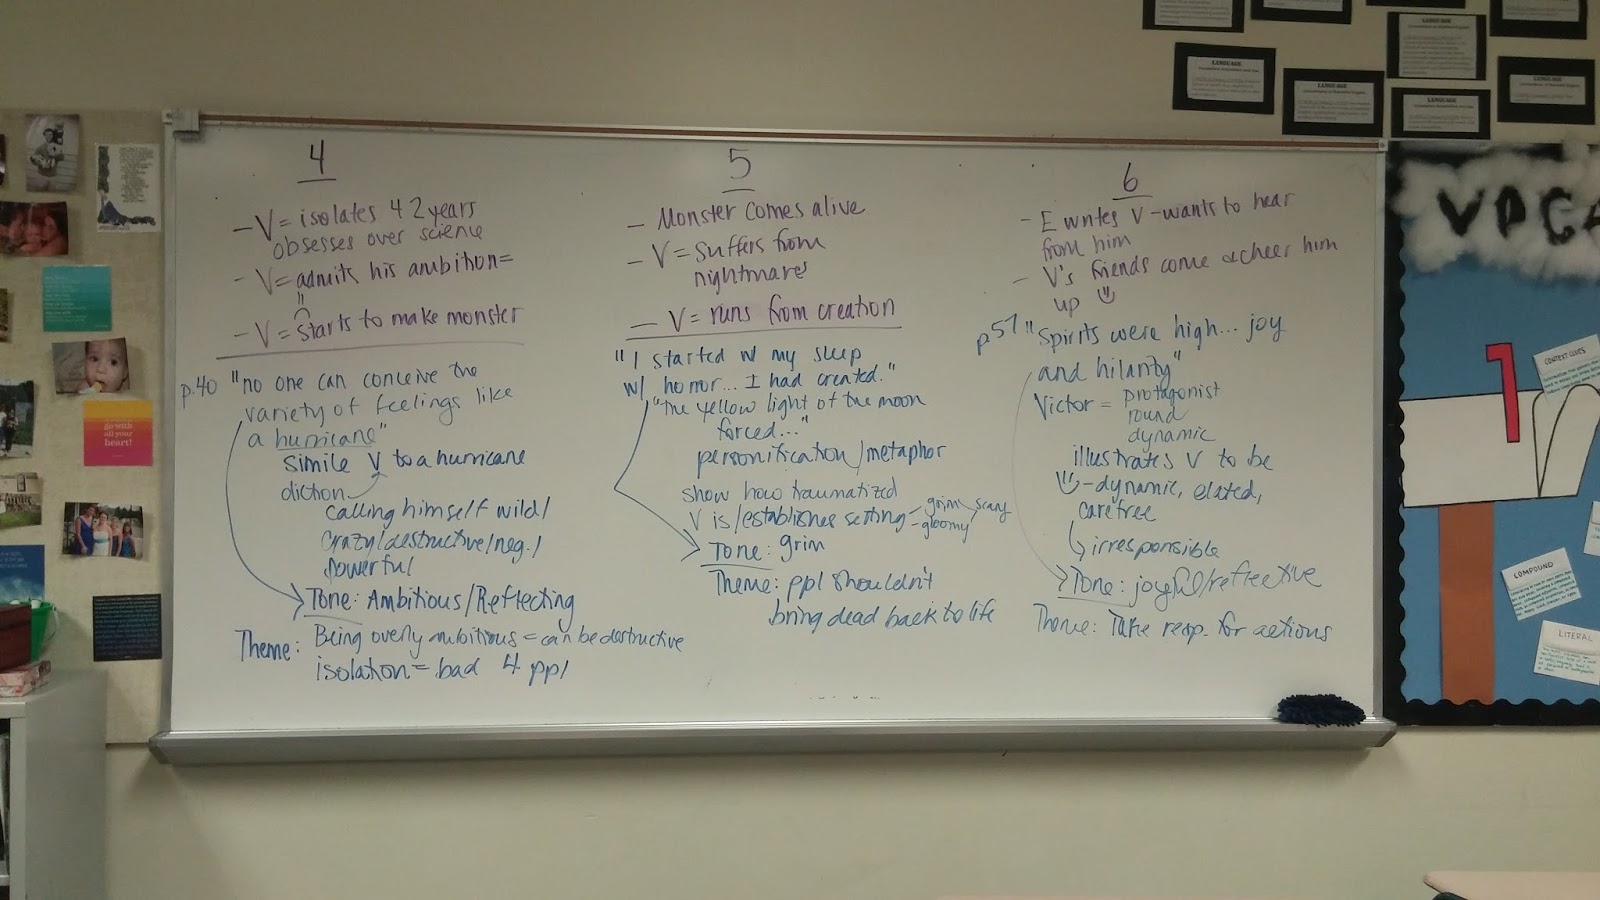 4
- V = isolates 4 2 years
obsesses over science
- V = admits his ambition =
- V = starts to make monster
p.40 "no one can conceive the
variety of feelings like
a hurricane"
simile V to a hurricane
diction
calling himself wild/
crazy/destructive/neg./
powerful
Tone: Ambitious/Reflecting
Theme: Being overly ambitious = can be destructive
isolation = bad 4 ppl
5
- Monster comes alive
- V = suffers from
nightmares
- V = runs from creation
"I started w/ my sleep
w/ horror... I had created."
"the yellow light of the moon
forced..."
personification/metaphor
show how traumatized
V is/establishes setting - grim scary
- gloomy
Tone: grim
Theme: ppl shouldn't
bring dead back to life
6
- E writes V - wants to hear
from him
- V's friends come & cheer him
up
p57 "Spirits were high... joy
and hilarity"
Victor = protagonist
round
dynamic
illustrates V to be
- dynamic, elated,
carefree
irresponsible
Tone: joyful/reflective
Theme: Take resp. for actions
LANGUAGE
LANGUAGE
LANGUAGE
LANGUAGE
LANGUAGE
go with
all your
heart!
CONTEXT CLUES
COMPOUND
LITERAL